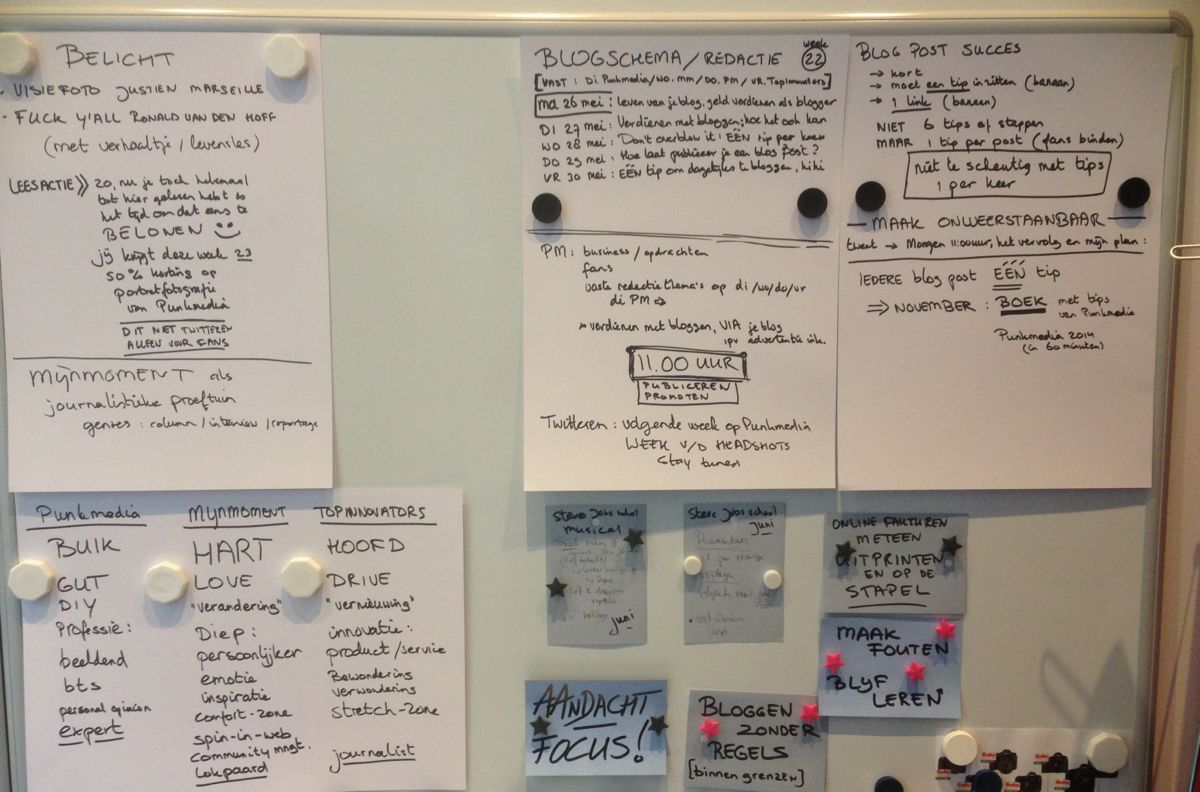 BELICHT
· VISIEFOTO JUSTIEN MARSEILLE
· FUCK Y'ALL RONALD VAN DEN HOFF
(met verhaaltje / levensles)
LEESACTIE » 20, nu je toch helemaal
tot hier gelezen hebt is
het tijd om dat eens te
BELONEN
jij krijgt deze week 23
50% korting op
portretfotografie
van Punkmedia
DIT NIET TWITTEREN
ALLEEN VOOR FANS
MIJNMOMENT als
journalistieke proeftuin
genres : column / interview / reportage
BLOGSCHEMA / REDACTIE week 22
[VAST : Di Punkmedia / WO. MM / DO. PM / VR. TopInnovators]
ma 26 mei : Leven van je blog, geld verdienen als blogger
DI 27 mei : Verdienen met bloggen; hoe het ook kan
WO 28 mei : Don't overblow it! ÉÉN tip per keer
DO 29 mei : Hoe laat publiceer je een blog post?
VR 30 mei : ÉÉN tip om dagelijks te bloggen, hihi
PM : business / opdrachten
fans
vaste redactiethema's op di / wo / do / vr
di PM →
verdienen met bloggen, VIA je blog
ipv advertentie ink.
11.00 UUR
PUBLICEREN
PROMOTEN
Twitteren : volgende week op Punkmedia
WEEK V/D HEADSHOTS
Stay tuned
BLOG POST SUCCES
→ kort
→ moet een tip in zitten (banaan)
→ 1 link (banaan)
NIET 6 tips of stappen
MAAR 1 tip per post (fans binden)
niet te scheutig met tips
1 per keer
MAAK ONWEERSTAANBAAR
tweet → Morgen 11:00 uur, het vervolg en mijn plan :
IEDERE blog post ÉÉN tip
⇒ NOVEMBER : BOEK met tips
van Punkmedia
Punkmedia 2014
(in 60 minuten)
Punkmedia
BUIK
GUT
DIY
Professie :
beeldend
bts
personal opinion
expert
MIJNMOMENT
HART
LOVE
"verandering"
Diep :
persoonlijker
emotie
inspiratie
comfort-zone
spin-in-web
community mngt.
Lokpaard
TOPINNOVATORS
HOOFD
DRIVE
"vernieuwing"
innovatie :
product / service
Bewondering
verwondering
stretch-zone
journalist
Steve Jobs school
musical
juni
Steve Jobs school
juni
ONLINE FAKTUREN
METEEN
UITPRINTEN
EN OP DE
STAPEL
MAAK
FOUTEN
BLIJF
LEREN
AANDACHT
FOCUS!
BLOGGEN
ZONDER
REGELS
[binnen grenzen]